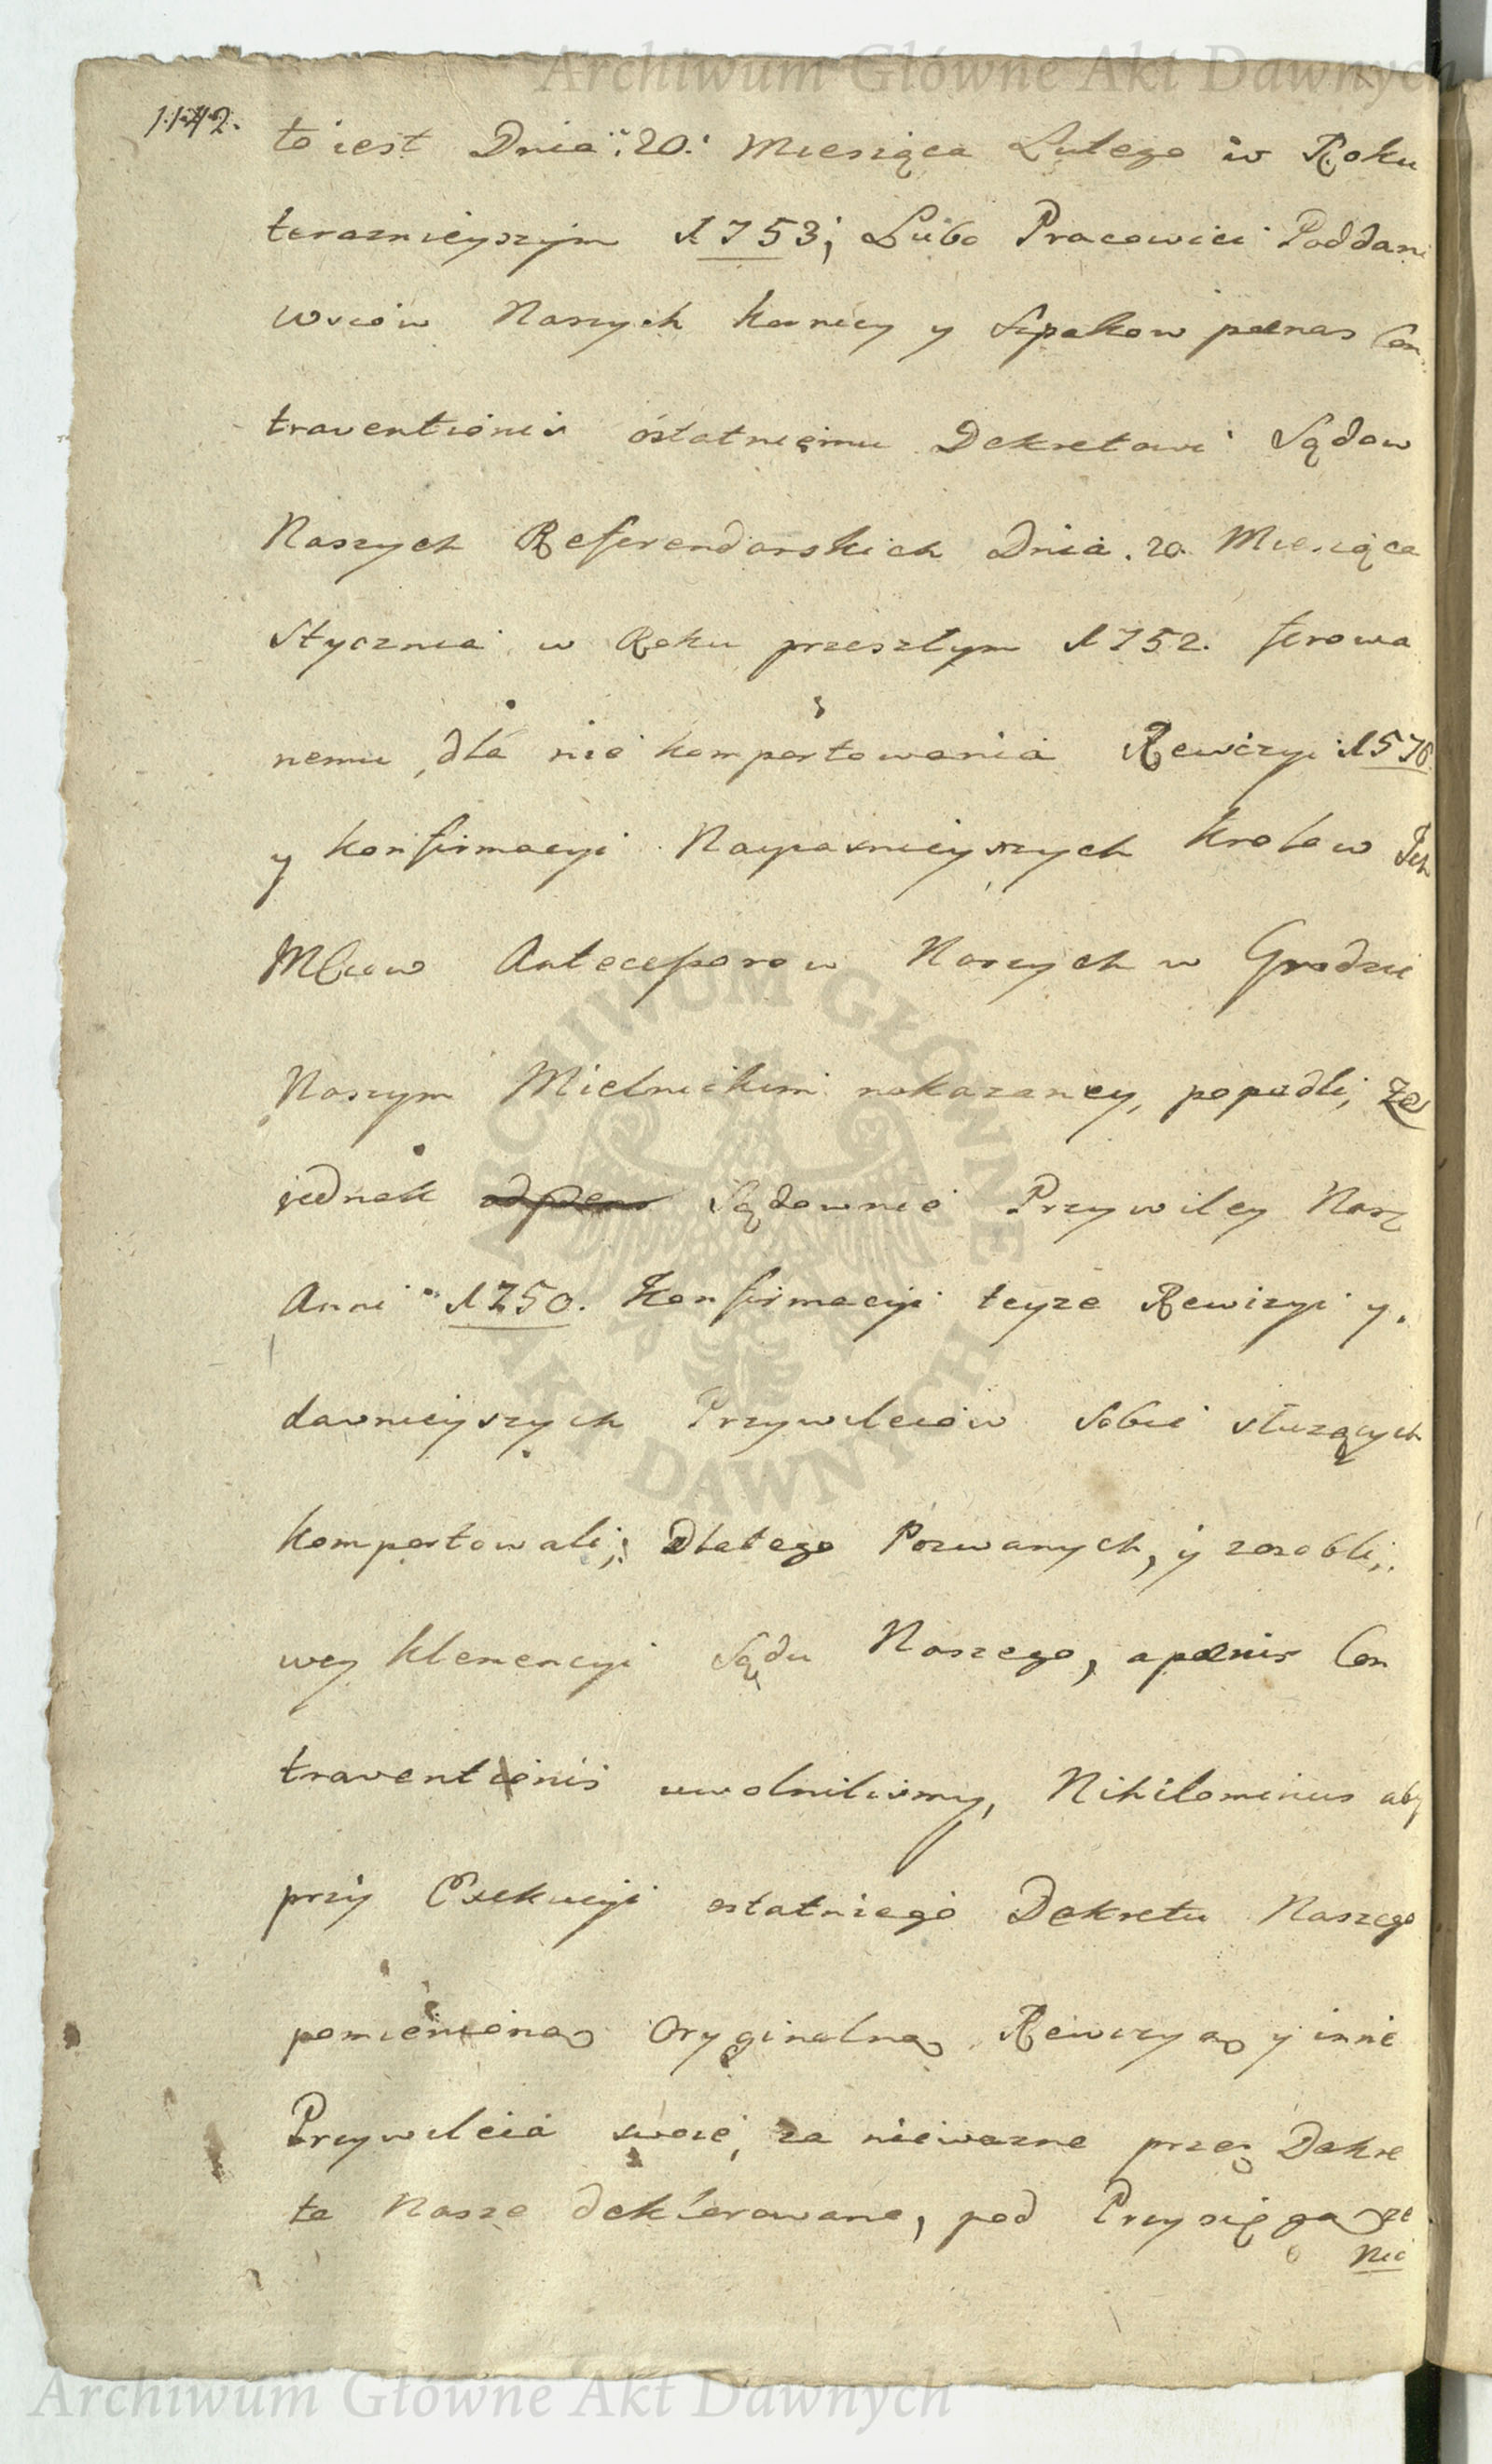 Archiwum Główne Akt Dawnych
1142.
to iest Dnia 20. Miesiąca Lutego w Roku
teraznieyszym 1753; Lubo Pracowici Poddani
wsiów Naszych Kornicy y Szpakow pænas Con
traventionis ostatniemu Dekretowi Sądow
Naszych Referendarskich Dnia. 20. Miesiąca
Stycznia w Roku przeszłym 1752. ferowa
nemu, dla nie komportowania Rewizyi 1570
y konfirmacyi Nayiasnieyszych Krolow Ich
Mciow Antecessorow Naszych w Grodzie
Naszym Mielnickim nakazaney, popadli, że
jednak Sądownie Przywiley Nasz
Anni 1750. Konfirmacyi teyże Rewizyi y
dawnieyszych Przywileiów sobie służących
komportowali; Dlatego Pozwanych, y zosobli,
wey Klemencyi Sądu Naszego, a pænis Con
traventionis uwolnilismy, Nihilominus aby
przy Exekucyi ostatniego Dekretu Naszego
pomienioną Oryginalną Rewizyą y inne
Przywileia swoie, za nieważne przez Dekre
ta Nasze deklarowane, pod Przysięgą że
nie
ARCHIWUM GŁÓWNE AKT DAWNYCH
Archiwum Główne Akt Dawnych